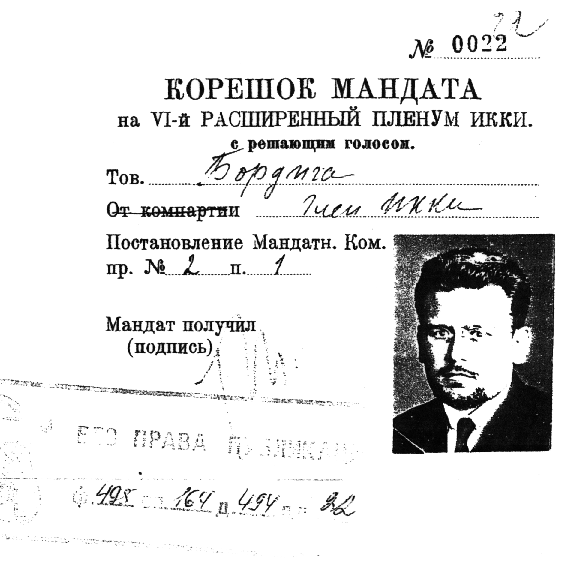 22
№ 0022
КОРЕШОК МАНДАТА
на VI-й РАСШИРЕННЫЙ ПЛЕНУМ ИККИ.
с решающим голосом.
Тов. Бордига
От компартии член ИККИ
Постановление Мандатн. Ком.
пр. № 2 п. 1
Мандат получил
(подпись)
БЕЗ ПРАВА ПУБЛИКАЦИИ
ф. 495 оп. 164 д. 494 л. 22